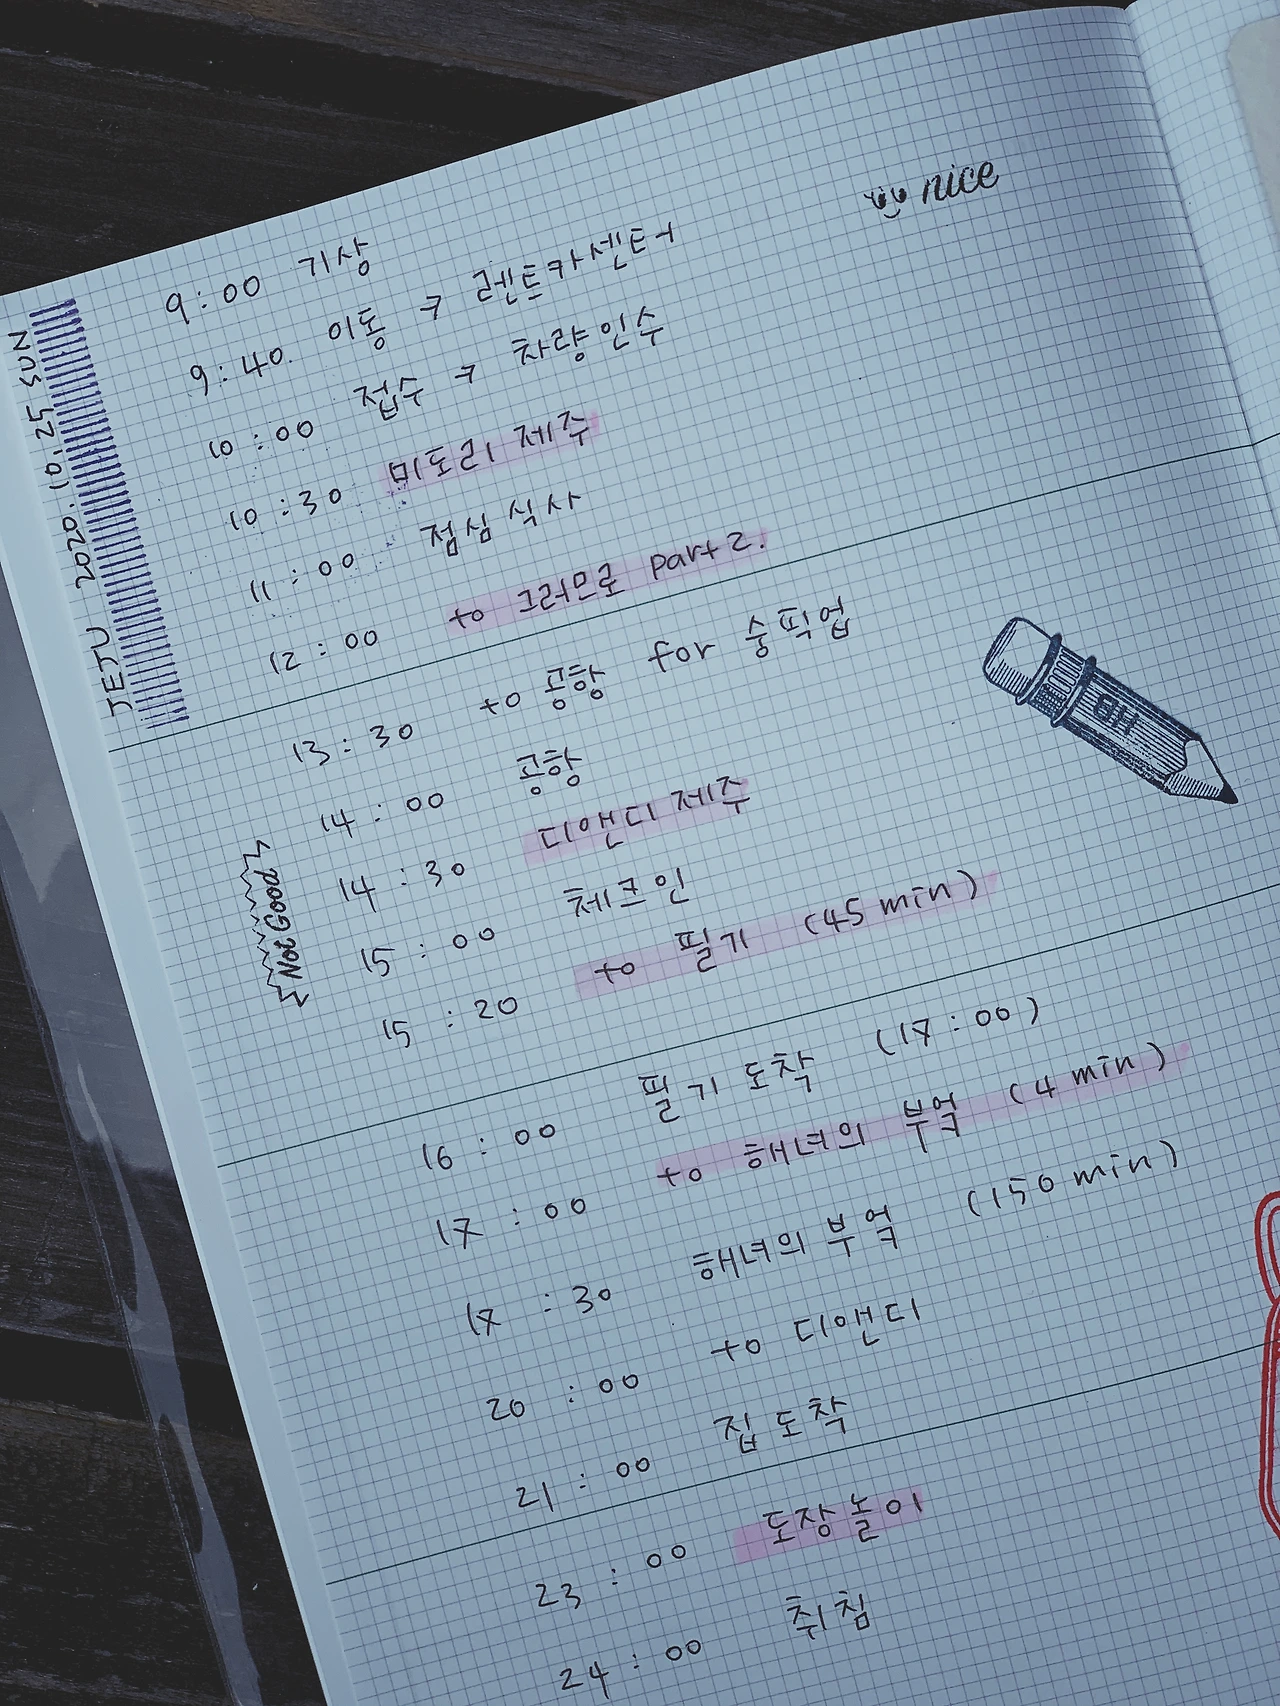 nice
JETU 2020.10.25 SUN
9:00 기상
9:40. 이동 → 렌트카센터
10:00 접수 → 차량인수
10:30 미도리 제주
11:00 점심식사
12:00 to 그러므로 part 2.
13:30 to 공항 for 숭픽업
14:00 공항
14:30 디앤디 제주
15:00 체크인
15:20 to 필기 (45 min)
Not Good
HB
16:00 필기 도착 (17:00)
17:00 to 해녀의 부엌 (4 min)
17:30 해녀의 부엌 (150 min)
20:00 to 디앤디
21:00 집 도착
23:00 도장놀이
24:00 취침